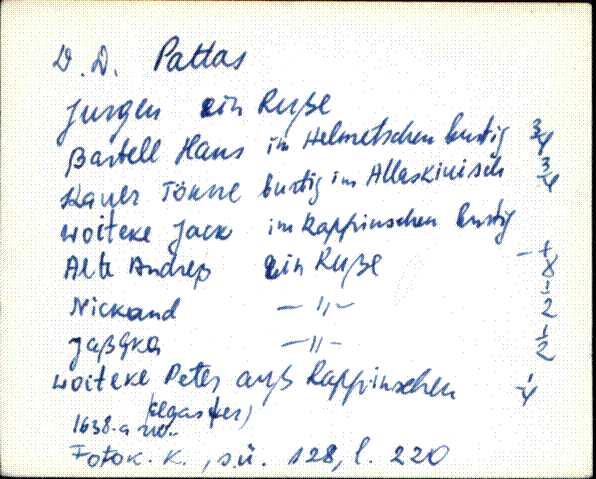 D. D. Pattas
Jurgen ein Ruße
Bartell Hans im Helmetschen burtig 3/4
Kauer Tönne burtig im Allaskiwisch 3/4
Woiteke Jack im Rappinschen burtig
Alte Andreß ein Ruße 1/8
Nickand — " — 1/2
Jaßgka — " — 1/2
Woiteke Peter auß Rappinschen 1/4
1638. a
Fotok. K., s.ü. 128, l. 220